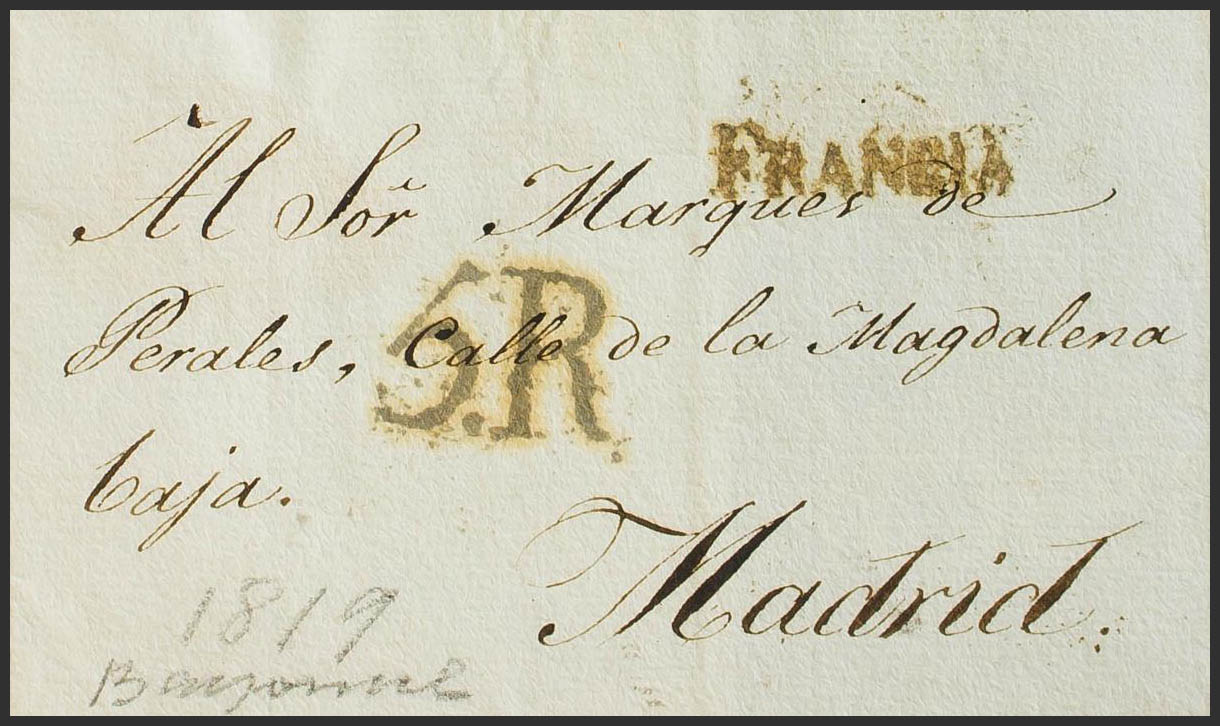 FRANCIA
Al Sor Marques de
Perales, Calle de la Magdalena
5.R
baja.
Madrid.
1819
Bayonne